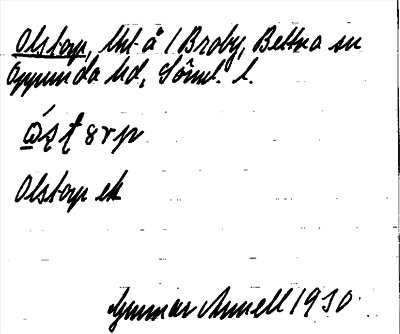 Olstorp, lht å 1 Broby, Bettna sn
Oppunda hd, Söml. l.
Olstorp ek
Gunnar Annell 1930